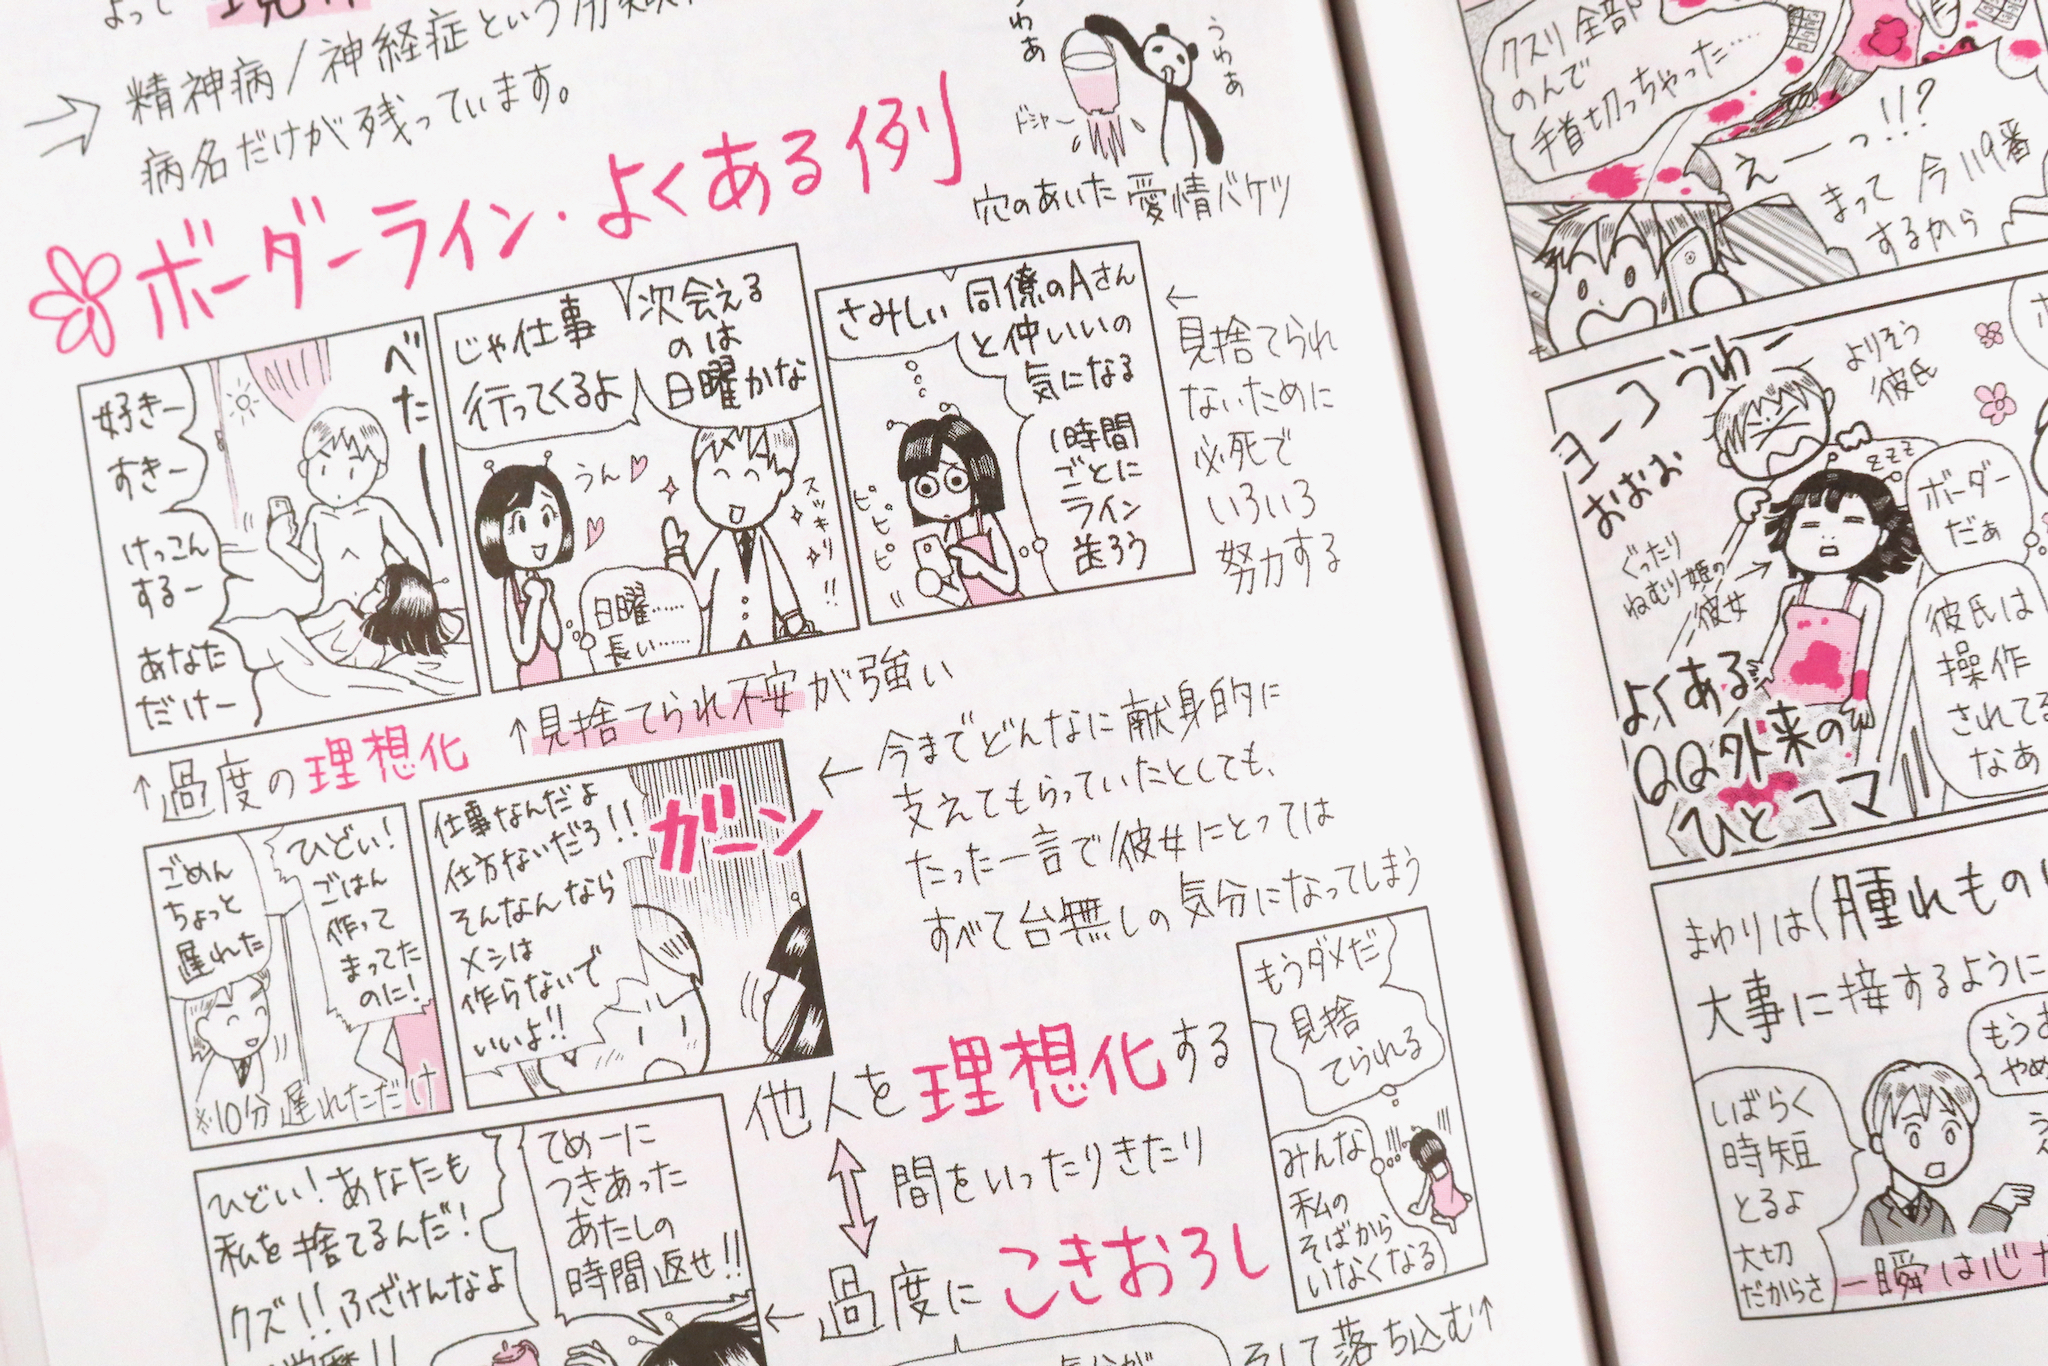 よって
精神病/神経症という
病名だけが残っています。
うわぁ
うわぁ
ドシャー
穴のあいた愛情バケツ
ボーダーライン・よくある例
べたー
好きー
すきー
けっこん
するー
あなた
だけー
↑過度の理想化
じゃ仕事
行ってくるよ
次会える
のは
日曜かな
うん♡
スッキリ!!
日曜……
長い……
↑見捨てられ不安が強い
さみしい
同僚のAさん
と仲いいの
気になる
1時間
ごとに
ライン
送ろう
ピピピピ
←
見捨てられ
ないために
必死で
いろいろ
努力する
ごめん
ちょっと
遅れた
ひどい!
ごはん
作って
まってた
のに!
※10分遅れただけ
仕事なんだよ
仕方ないだろ!!
そんなんなら
メシは
作らないで
いいよ!!
ガーン
←今までどんなに献身的に
支えてもらっていたとしても、
たった一言で彼女にとっては
すべて台無しの気分になってしまう
ひどい!あなたも
私を捨てるんだ!
クズ!!ふざけんなよ
てめーに
つきあった
あたしの
時間返せ!!
他人を理想化する
間をいったりきたり
←過度にこきおろし
もうダメだ
見捨
てられる
みんな
私の
そばから
いなくなる
そして落ち込む↑
気分が
クスリ全部
のんで
手首切っちゃった……
えーっ!!?
まって今119番
するから
ヨーコうわー
おぉぉ
よりそう
彼氏
zzz
ぐったり
ねむり姫の
彼女
ボーダー
だぁ
彼氏は
操作
されてる
なあ
よくある
QQ外来の
ひとコマ
まわりは(腫れもの
大事に接するように
しばらく
時短
とるよ
大切
だからさ
もうお
やめ
一瞬は心